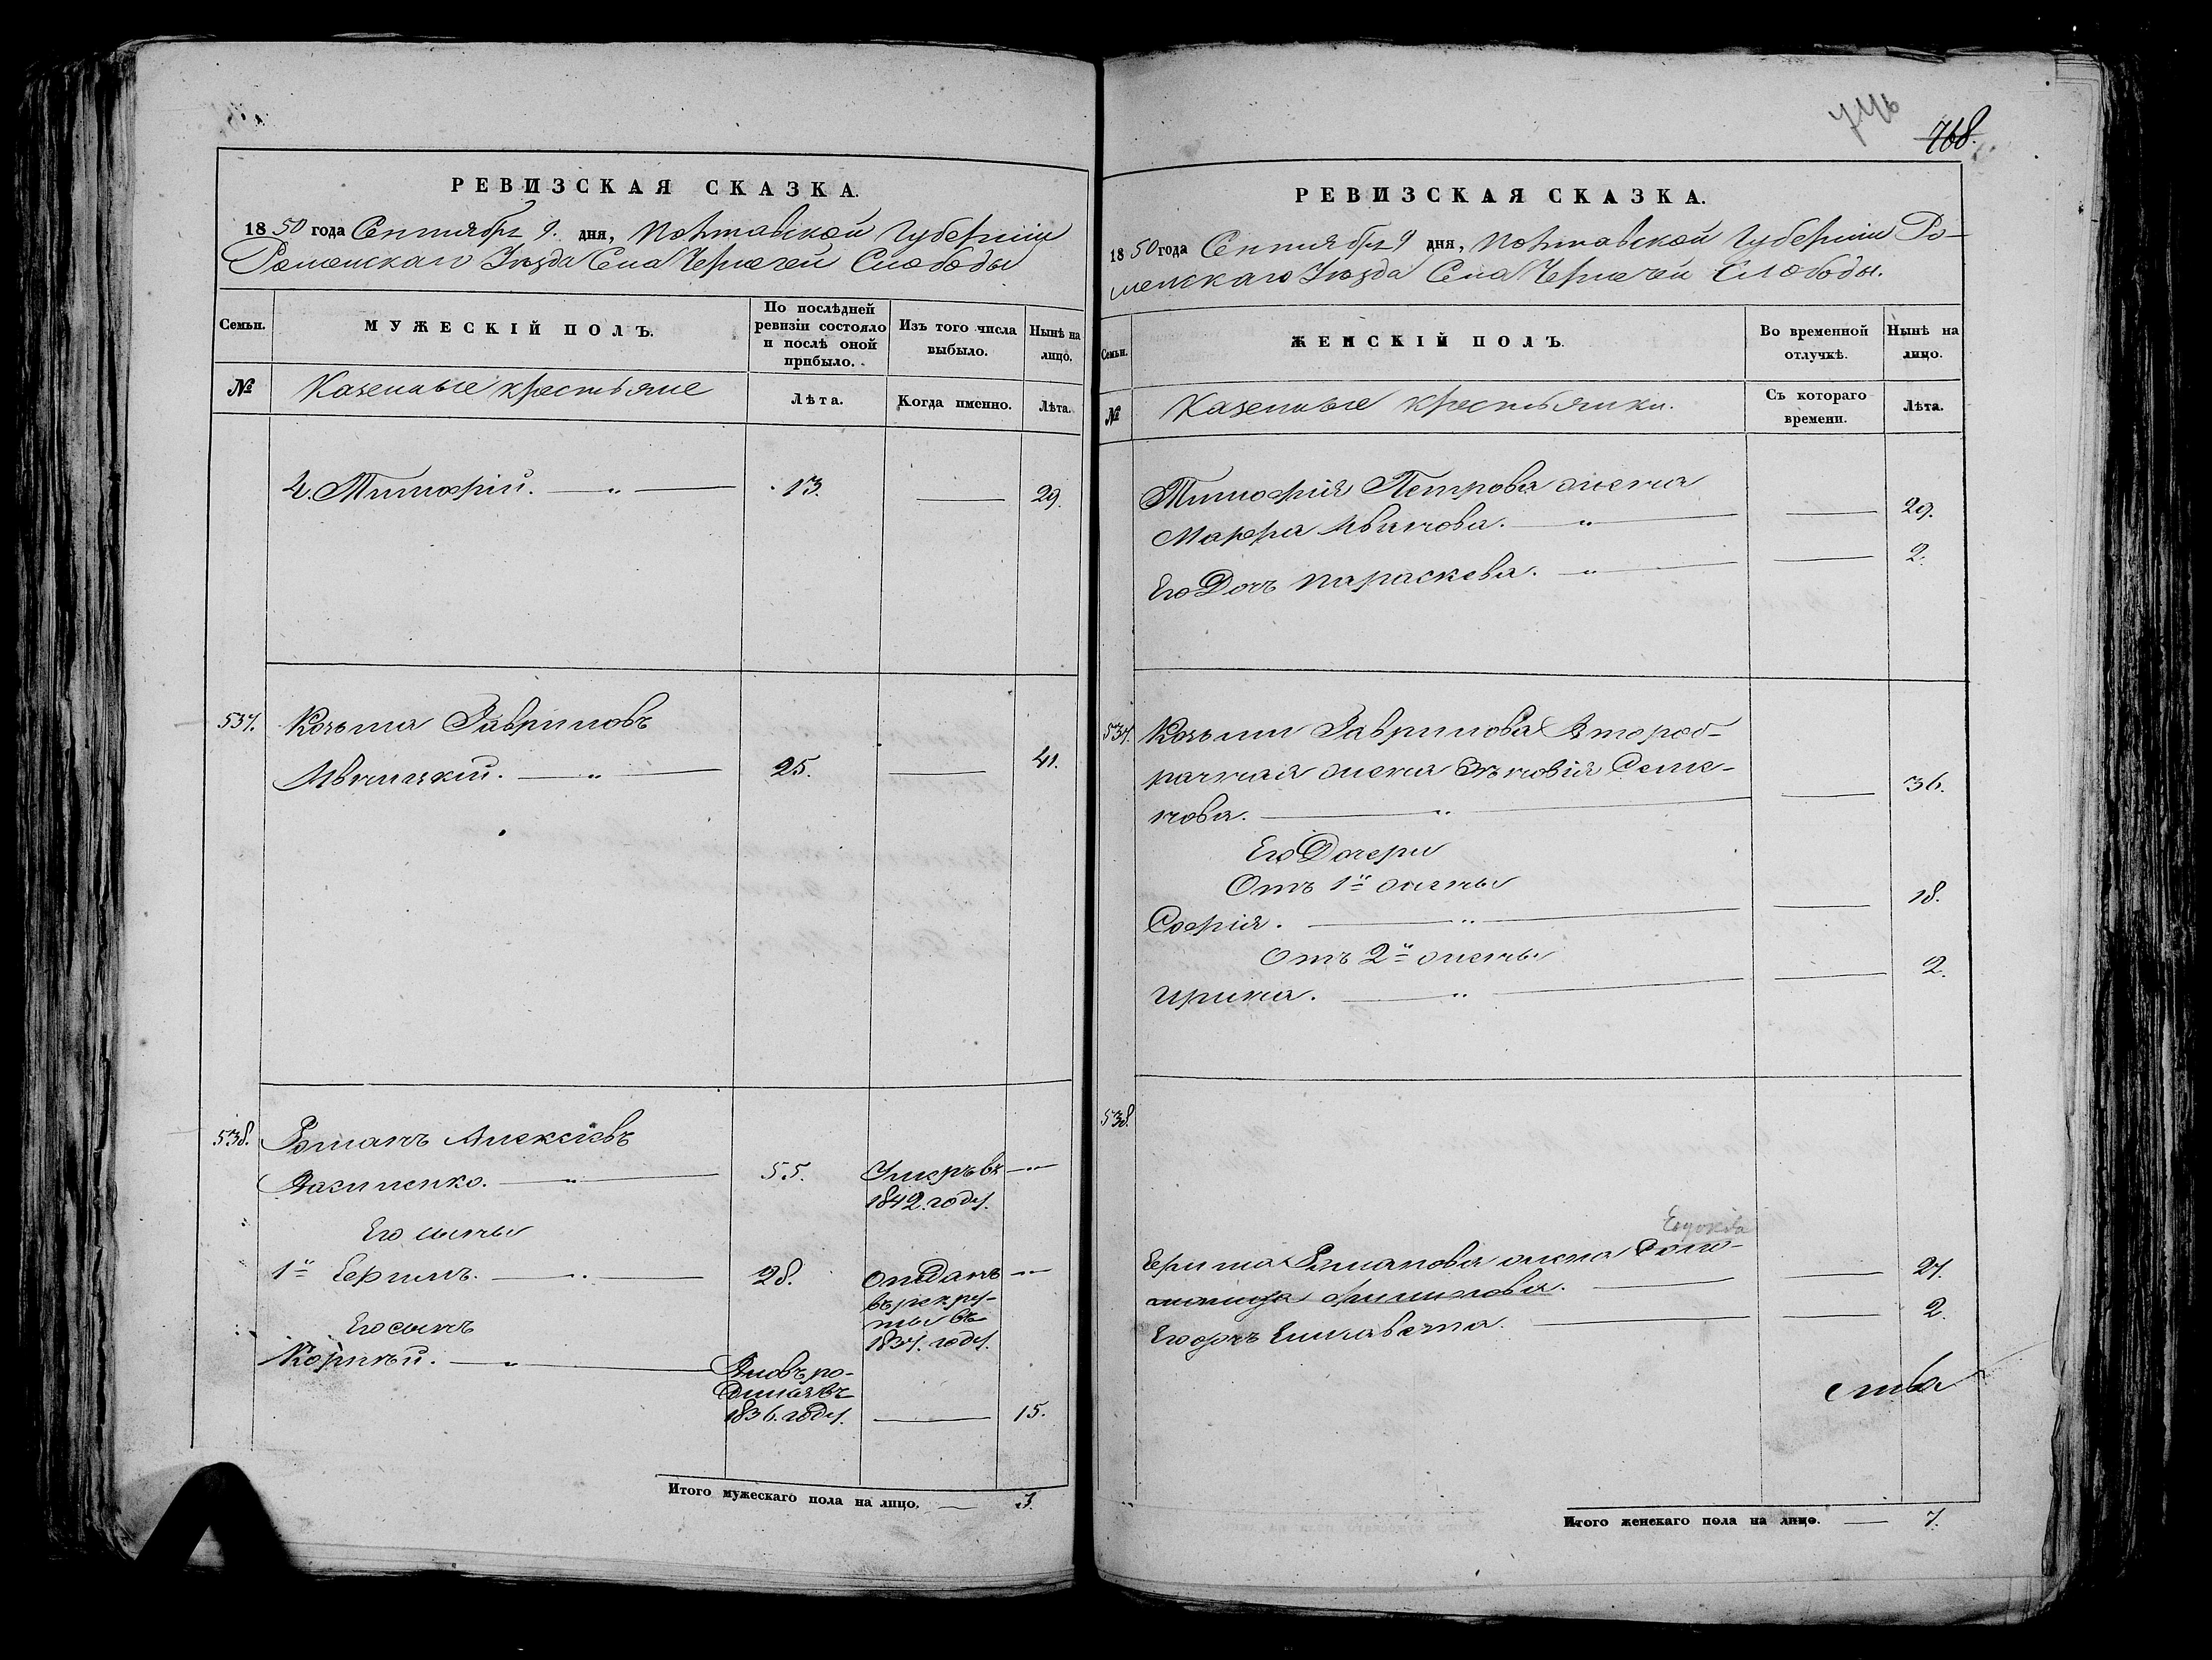 РЕВИЗСКАЯ СКАЗКА.
1850 года Сентября 9. дня, Полтавской Губерніи
Роменскаго Уѣзда Села Чернечей Слободы
Семьи. МУЖЕСКІЙ ПОЛЪ. По послѣдней ревизіи состояло и послѣ оной прибыло. Изъ того числа выбыло. Нынѣ на лицо.
№ Казенные крестьяне Лѣта. Когда именно. Лѣта.
4. Тимофій. — „ — 13. — 29.
537. Козьма Гавриловъ
Ивницкій. — „ — 25. — 41.
538. Романъ Алексіевъ
Василенко. — „ — 55. Умеръ въ — „ —
1842. году.
Его сыны
1й Ефимъ. — „ — 28. отданъ — „ —
въ рекру-
ты въ
1837. году.
Его сынъ
Корнѣй. — „ — Вновь ро-
дился въ
1836. году. — 15.
Итого мужескаго пола на лицо. — 3.
768.
РЕВИЗСКАЯ СКАЗКА.
1850 года Сентября 9 дня, Полтавской Губерніи Ро-
менскаго Уѣзда Села Чернечей Слободы.
Семьи. ЖЕНСКІЙ ПОЛЪ. Во временной отлучкѣ. Нынѣ на лицо.
№ Казенные крестьянки. Съ котораго времени. Лѣта.
Тимофія Петрова жена
Марфа Иванова. — „ — — 29.
Его Дочь Параскева. — „ — — 2.
537. Козьми Гаврилова Второб-
рачная жена Зѣновія Семе-
нова. — „ — — 36.
Его Дочери
Отъ 1й жены
Софія. — „ — — 18.
Отъ 2й жены
Ирина. — „ — — 2.
538.
Ефима Романова жена Соло-
Филипова. — — 27.
Его дочь Елисавета. — — 2.
Итого женскаго пола на лицо. — 7.